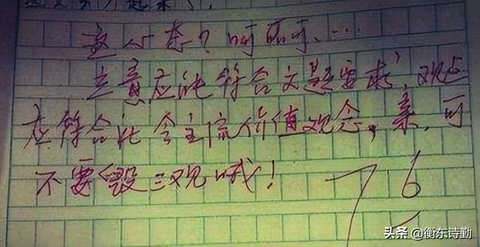 这心态？呵呵呵、…
立意应能符合文题要求，观点
应符合社会主流价值观念，亲，可
不要毁三观哦！
76
头条 @衡东诗勤